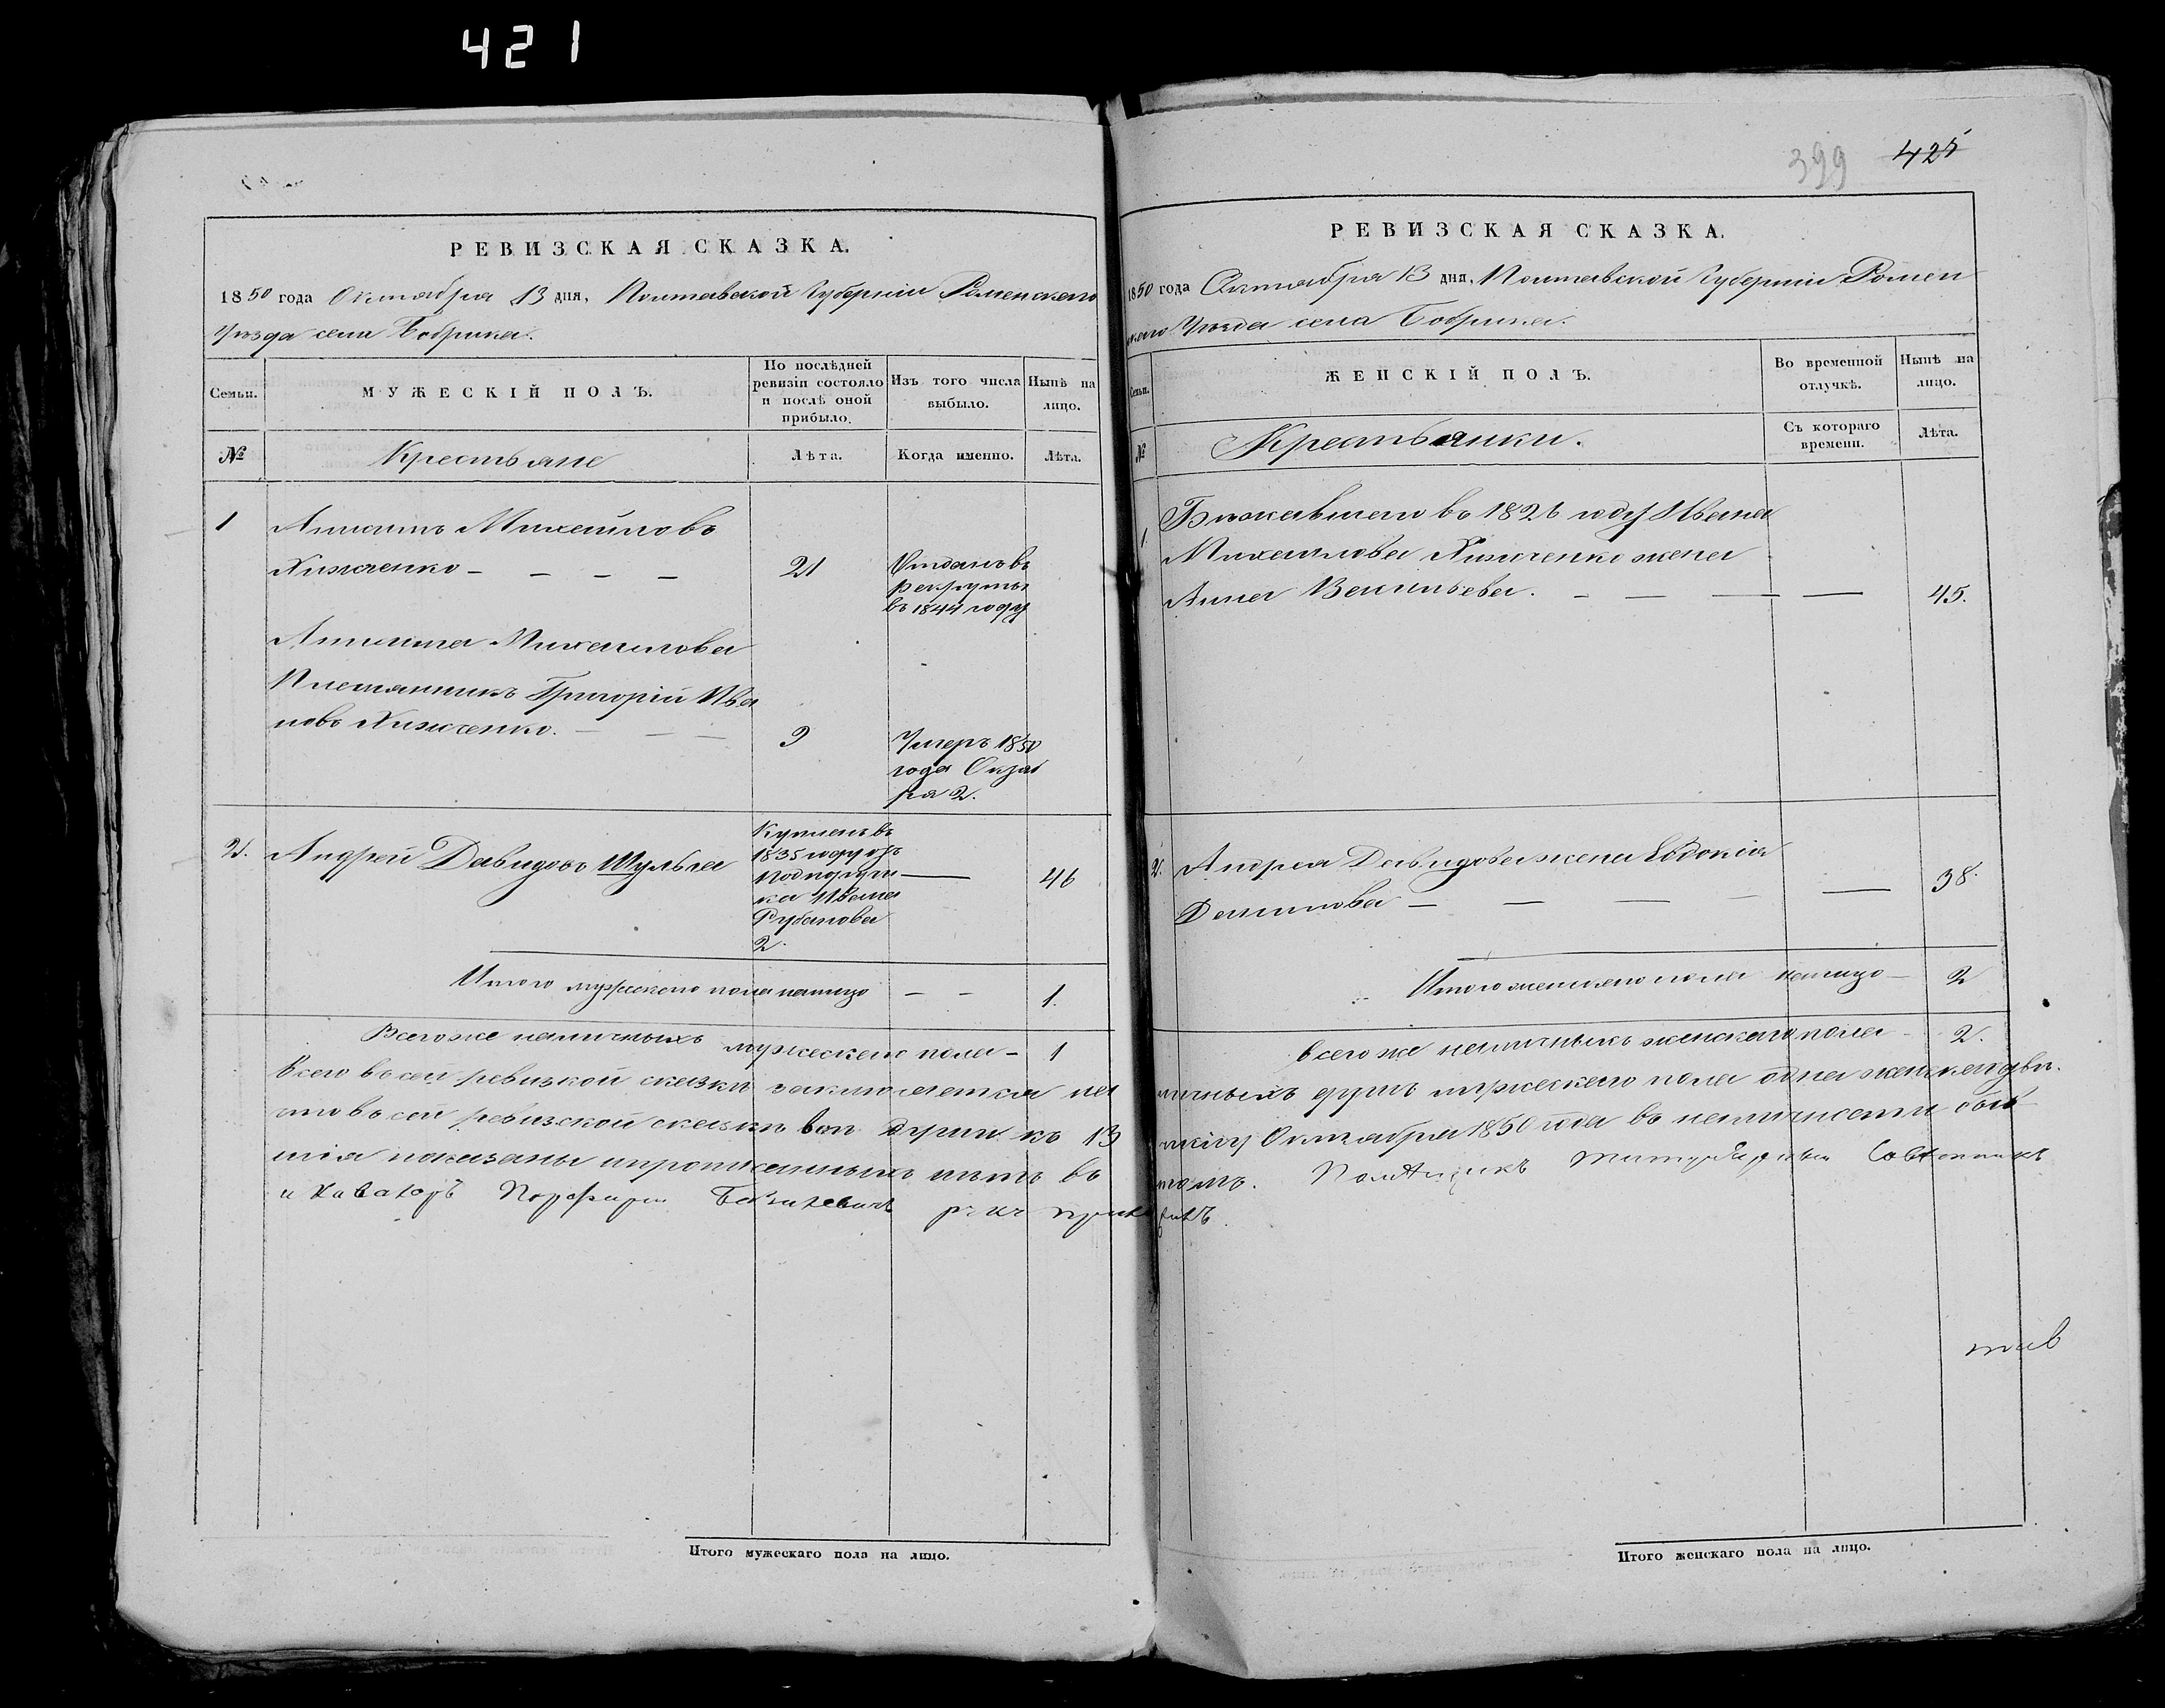 421
РЕВИЗСКАЯ СКАЗКА.
1850 года Октября 13 дня, Полтавской Губерніи Роменскаго
Уѣзда села Бобрика.
Семьи.
МУЖЕСКІЙ ПОЛЪ.
По послѣдней
ревизіи состояло
и послѣ оной
прибыло.
Изъ того числа
выбыло.
Нынѣ на
лицо.
№
Крестьяне
Лѣта.
Когда именно.
Лѣта.
1
Михайловъ
Хижченко — — — — 21
Отданъ въ
Рекруты
въ 1844 году
Михайлова
Племянникъ Григорій Ива
новъ Хижченко. — — — 9
Умеръ 1850
года
ря 2.
2. Андрей Давидовъ Шульга
Купленъ въ
1835 году отъ
Подпоручи
ка Ивана
Рубанова
2.
— 46
Итого мужескаго пола налицо — — 1.
Всего же наличныхъ мужескаго пола — 1
Всего въ сей ревизкой сказки заключается на
что въ сей ревизской сказкѣ всѣ души къ 13
шія показаны и прописанныхъ нѣтъ въ
и Кавалеръ Порфирій
399 425
РЕВИЗСКАЯ СКАЗКА.
1850 года Октября 13 дня, Полтавской Губерніи Ромен
скаго Уѣзда села Бобрика.
Семьи.
ЖЕНСКІЙ ПОЛЪ.
Во временной
отлучкѣ.
Нынѣ на
лицо.
№
Крестьянки.
Съ котораго
времени.
Лѣта.
1.
Бѣжавшего въ 1826 году Ивана
Михайлова Хижченко жена
Анна Васильева. — — — — 45.
2. Андрея Давидова жена Евдокія
Данилова — — — — — 38.
Итого женскаго пола налицо — 2
Всего же наличныхъ женскаго пола — 2.
личныхъ душъ мужескаго пола одна женскаго двѣ.
числу Октября 1850 года въ наличности быв
томъ. Помѣщикъ Титулярный Совѣтникъ
Итого мужескаго пола на лицо.
Итого женскаго пола на лицо.